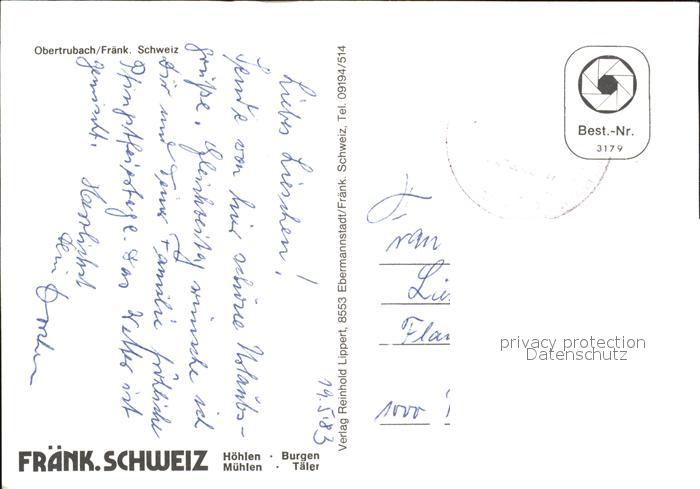 Obertrubach/Fränk. Schweiz
19.5.83
Liebes Lieschen!
Sende von hier schöne Urlaubs-
grüße. Gleichzeitig wünsche ich
Dir und Deiner Familie fröhliche
Pfingstfeiertage. Das Wetter ist
gemischt. Herzlichst
Dein
FRÄNK. SCHWEIZ
Höhlen · Burgen
Mühlen · Täler
Verlag Reinhold Lippert, 8553 Ebermannstadt/Fränk. Schweiz, Tel. 09194/514
Best.-Nr.
3179
Frau
Lie
Flan
1000
privacy protection
Datenschutz